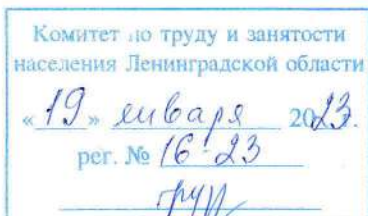 Комитет по труду и занятости
населения Ленинградской области
«19» января 2023.
рег. № 16-23